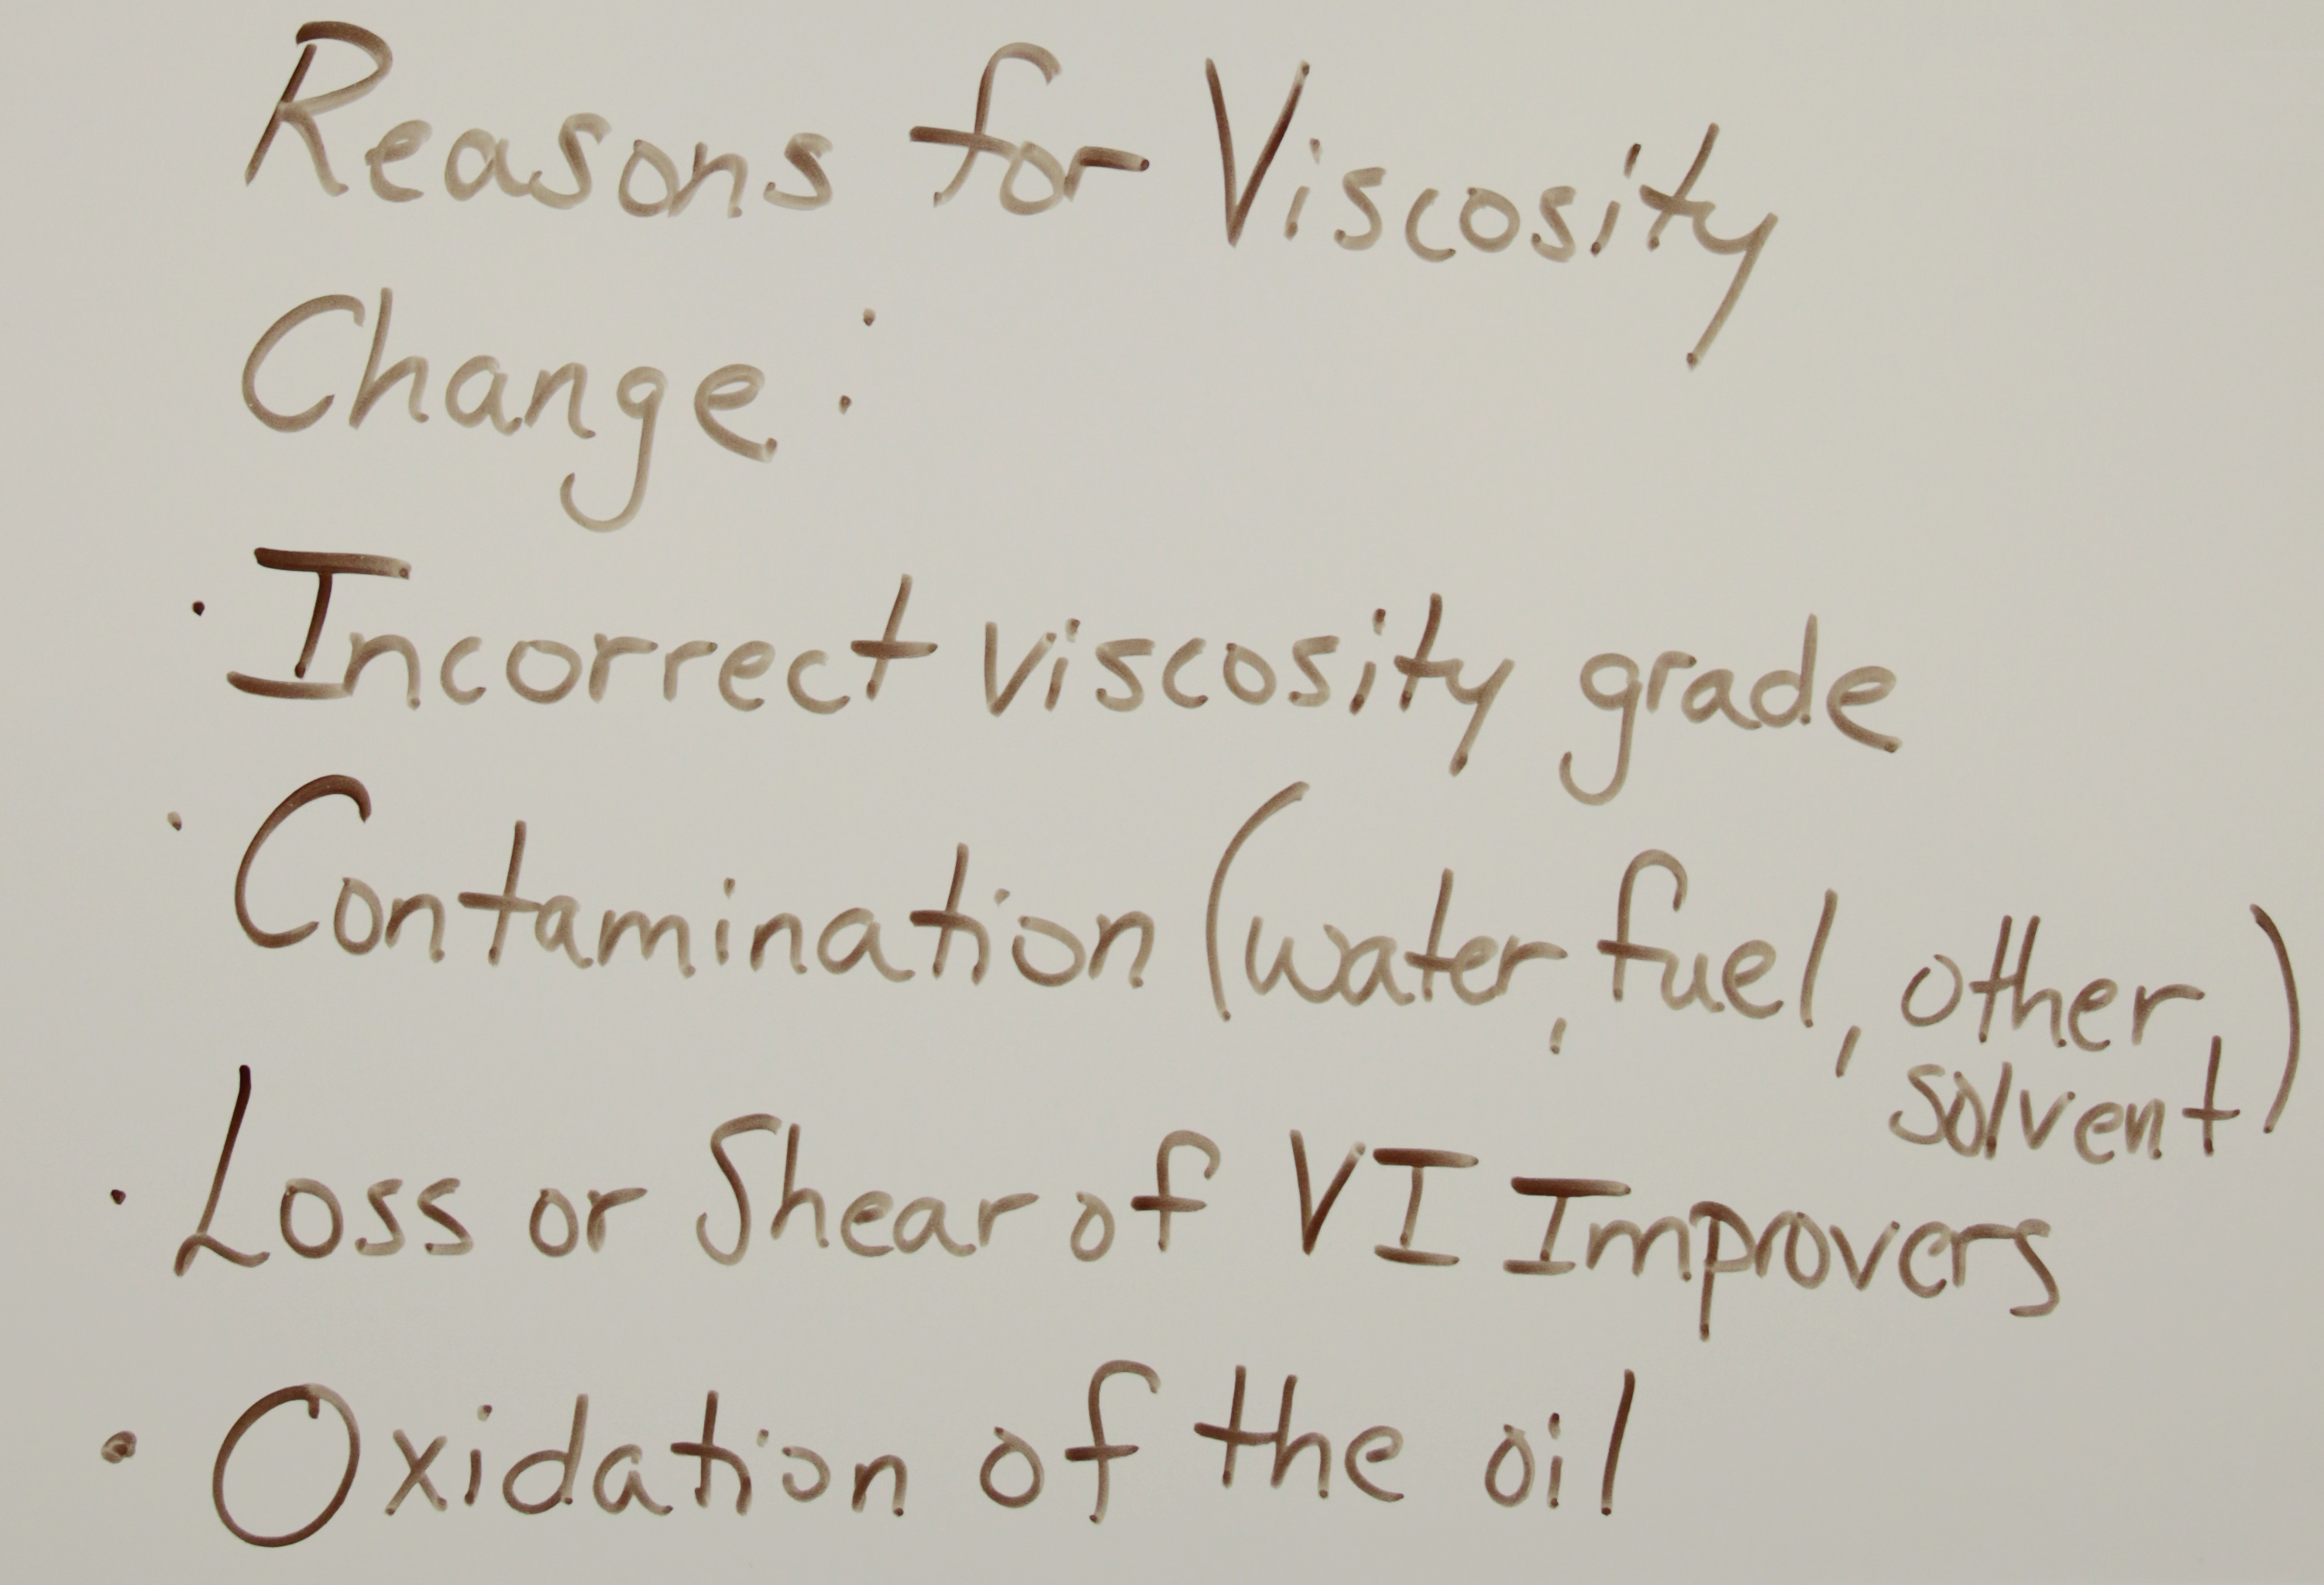 Reasons for Viscosity
Change:
· Incorrect viscosity grade
· Contamination (water, fuel, other
solvent)
· Loss or Shear of VI Improvers
· Oxidation of the oil